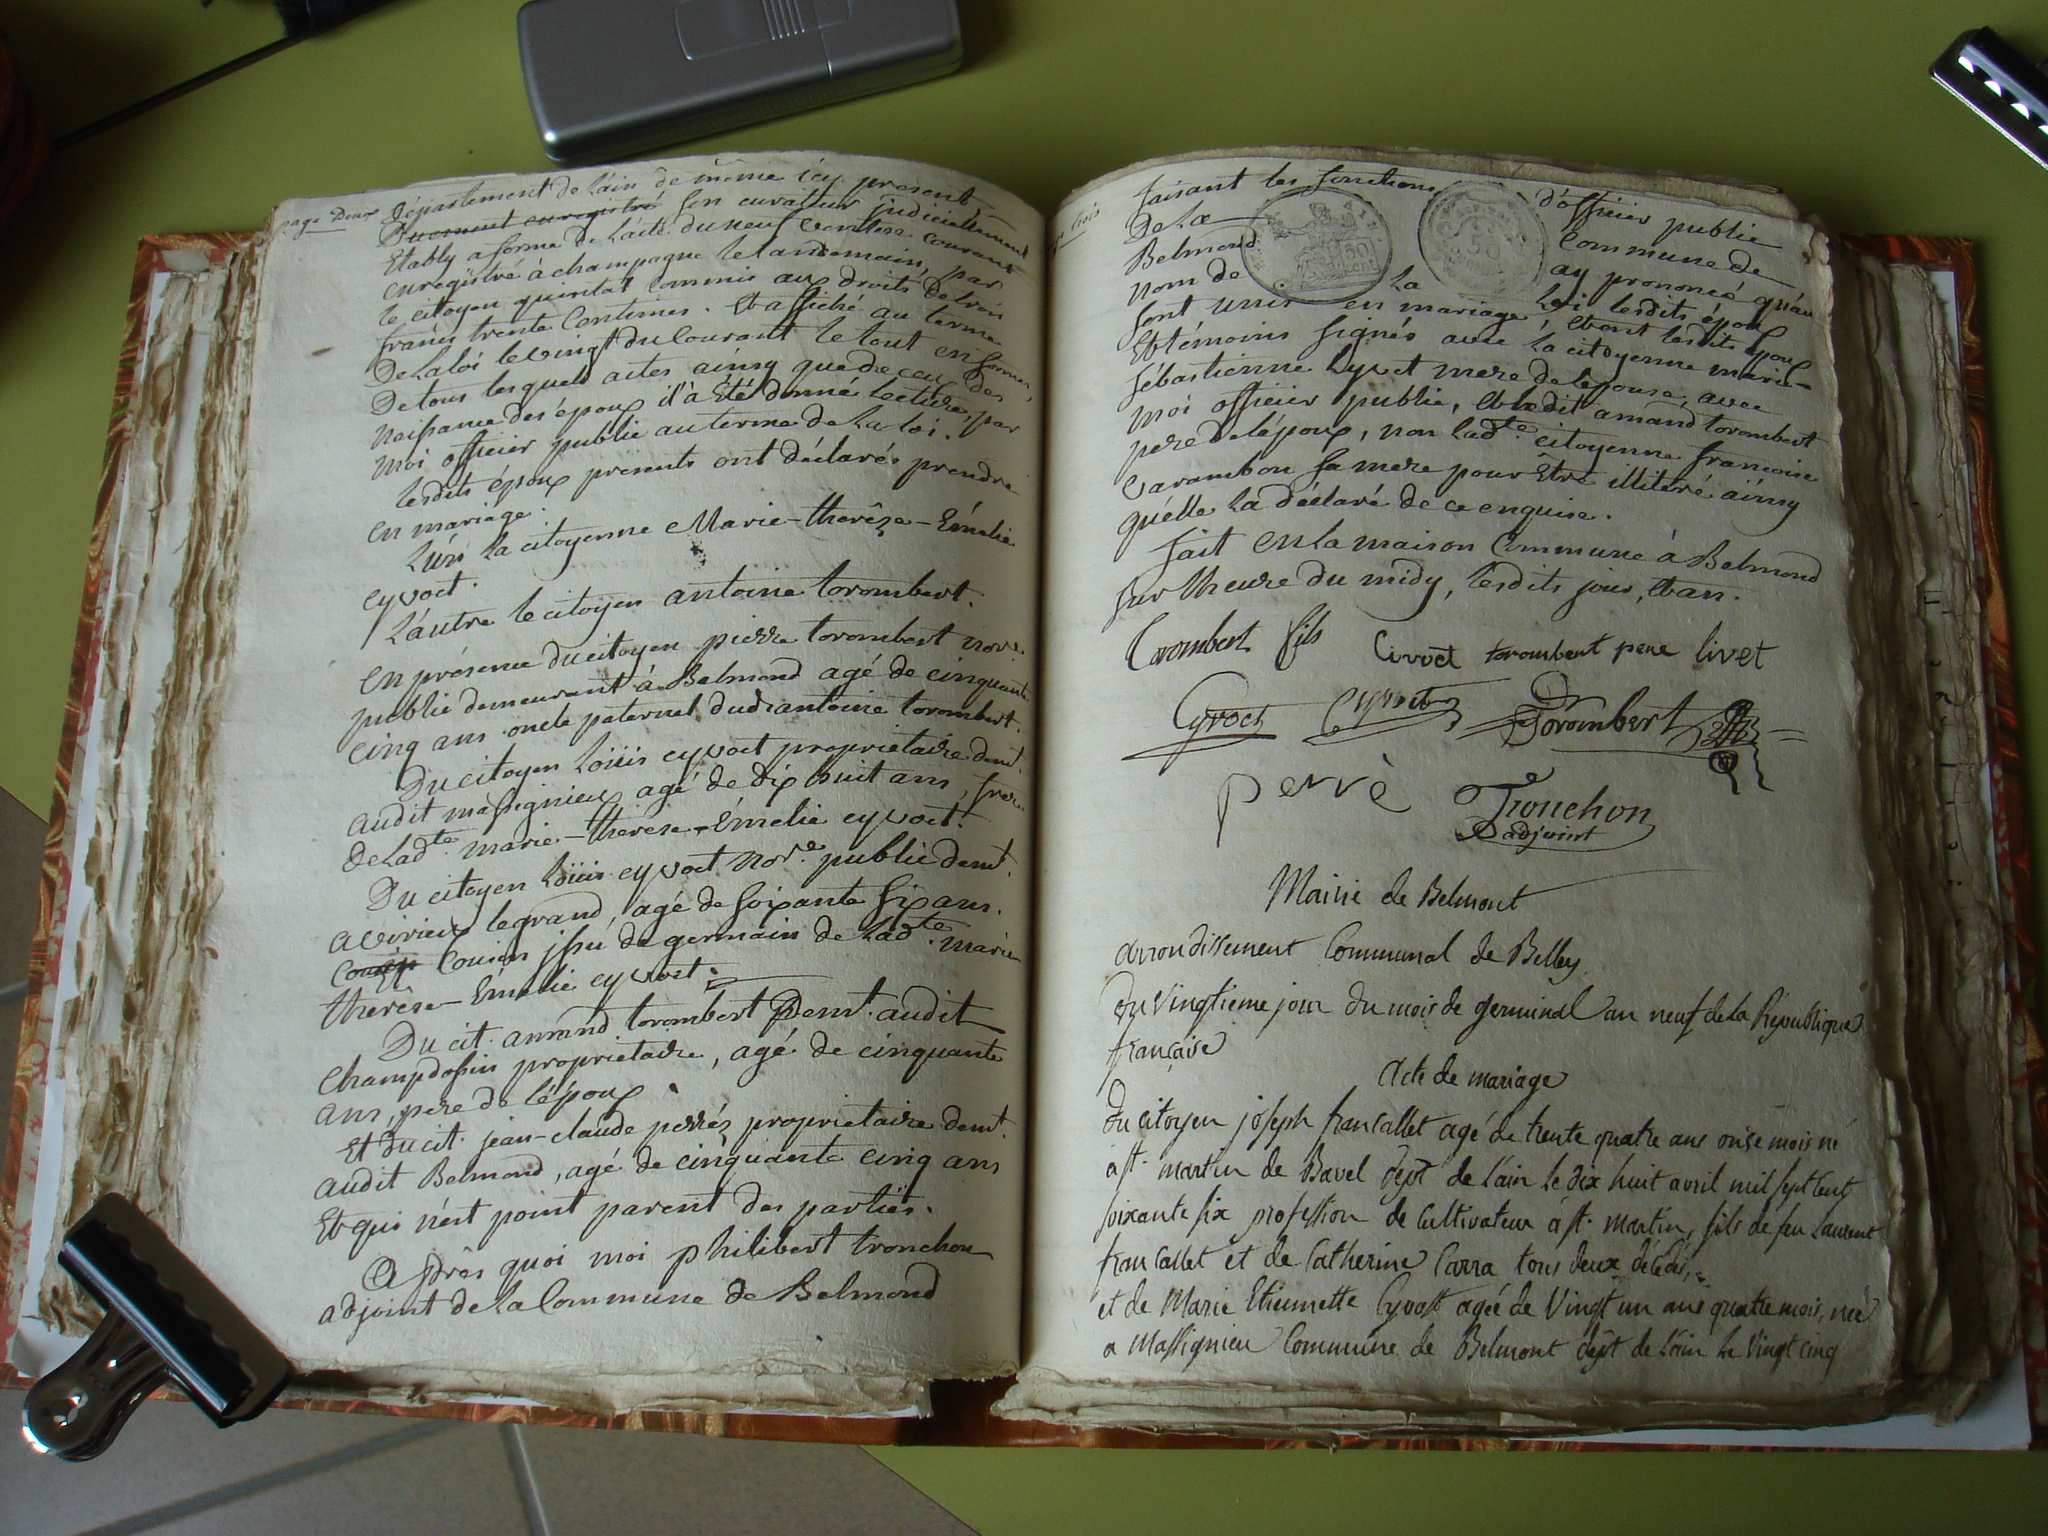 page Deux Département de L'ain de même icy present
Ducement enregistré son curateur judiciellement
Etably a forme de L'acte du neuf ventose courant
enregistré à champagne le landemain, par
le citoyen quinttat commis aux droits de trois
francs trente Centimes. Et affiché au terme
De la loi le vingt du Courant le tout en forme,
De tous lesquels actes ainsy que de ceux des
Naissance des époux il à Été donné lecture, par
moi officier public au terme de La loi.
lesdits époux presents ont déclarés prendre
en mariage.
L'un La citoyenne Marie-therêse-Emélie
cyvoct.
L'autre le citoyen antoine torombert.
en présence du citoyen pierre torombert nore.
public demeurant à Belmond agé de cinquante
cinq ans oncle paternel dudt antoine torombert.
Du citoyen Loüis cyvoct propriétaire demt.
audit massignieu agé de dix huit ans, frere
de Ladte. marie-therese-Emelie cyvoct.
Du citoyen Loüis cyvoct nore. public demt.
a virieu legrand, agé de soixante six ans.
Cousin issu de germain de Ladte. marie
therêse-Emélie cyvoct.
Du cit. amand torombert Demt. audit
champdossin propriétaire, agé de cinquante
ans, pere de L'époux.
Et Du cit. jean-claude perrés propriétaire demt.
audit Belmond, agé de cinquante cinq ans
Et qui n'est point parent des partiës.
Après quoi moi philibert tronchon
adjoint de La Commune de Belmond
faisant les fonctions d'officier public
De La Commune de
Belmond ay prononcé qu'au
nom de La Loi lesdits époux
sont unis en mariage, Et ont lesdits époux
Et témoins signés avec la citoyenne marie-
sébastienne Lyvet mere de l'épouse, avec
moi officier public, Et ledit amand torombert
pere de l'époux, non Ladte. citoyenne francoise
varambon sa mere pour Être illiteré ainsy
qu'elle La déclaré de ce enquise.
fait en La maison Commune à Belmond
sur Lheure du midy, lesdits jour, Et an.
Torombert fils Civoct torombert pere livet
Cyvoct Cyvoct Torombert
perrè Tronchon
adjoint
Mairie de Belmont
arrondissement Communal de Belley
Du Vingtieme jour Du mois de germinal an neuf de la République
française
Acte de mariage
Du citoyen joseph francallet agé de trente quatre ans onse mois né
à st. martin de Bavel dept de L'ain le dix huit avril mil sept cent
soixante six profession de Cultivateur à st. martin, fils de feu Laurent
francallet et de Catherine Carra tous deux décédés,
et de Marie Etiennette Cyvoct agée de Vingt un ans quatre mois, née
a Massignieu Commune de Belmont dept de L'ain le Vingt cinq